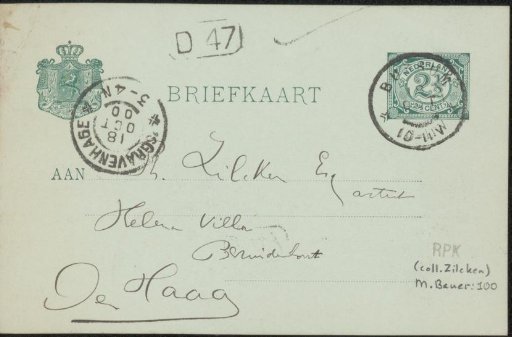 D 47
NEDERLAND
2½
CENT
BRIEFKAART
10-11V
'S GRAVENHAGE
18
OCT
00
3-4N
AAN Ph. Zilcken Esq
artist
Helena Villa
Bezuidenhout
Den Haag
RPK
(coll. Zilcken)
M. Bauer: 100